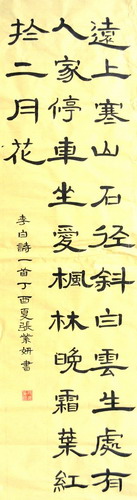 遠上寒山石径斜白雲生處有
人家停車坐愛楓林晚霜葉紅
扵二月花
李白詩一首丁酉夏張紫妍書